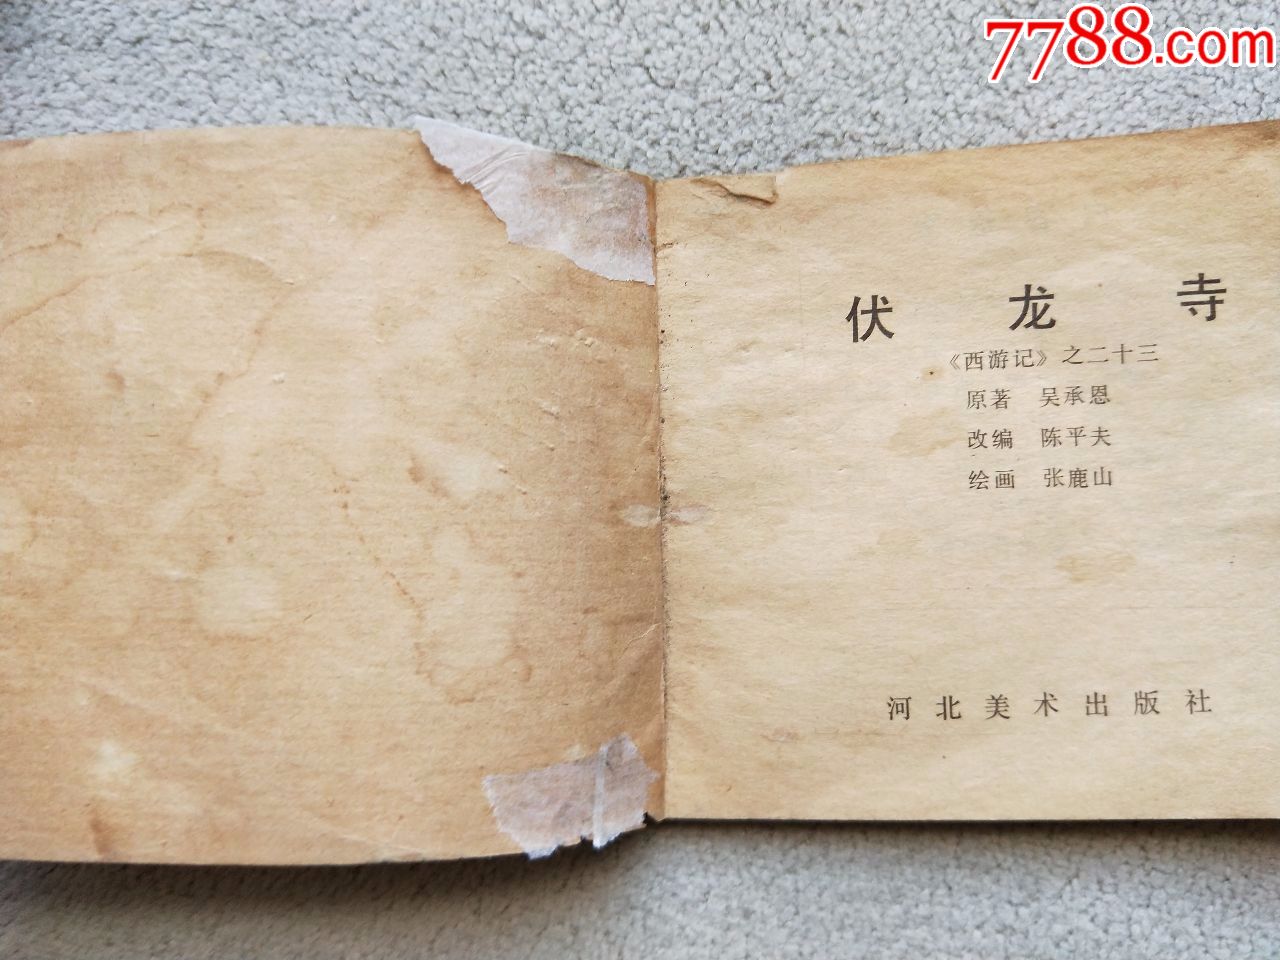 7788.com
伏龙寺
《西游记》之二十三
原著 吴承恩
改编 陈平夫
绘画 张鹿山
河北美术出版社